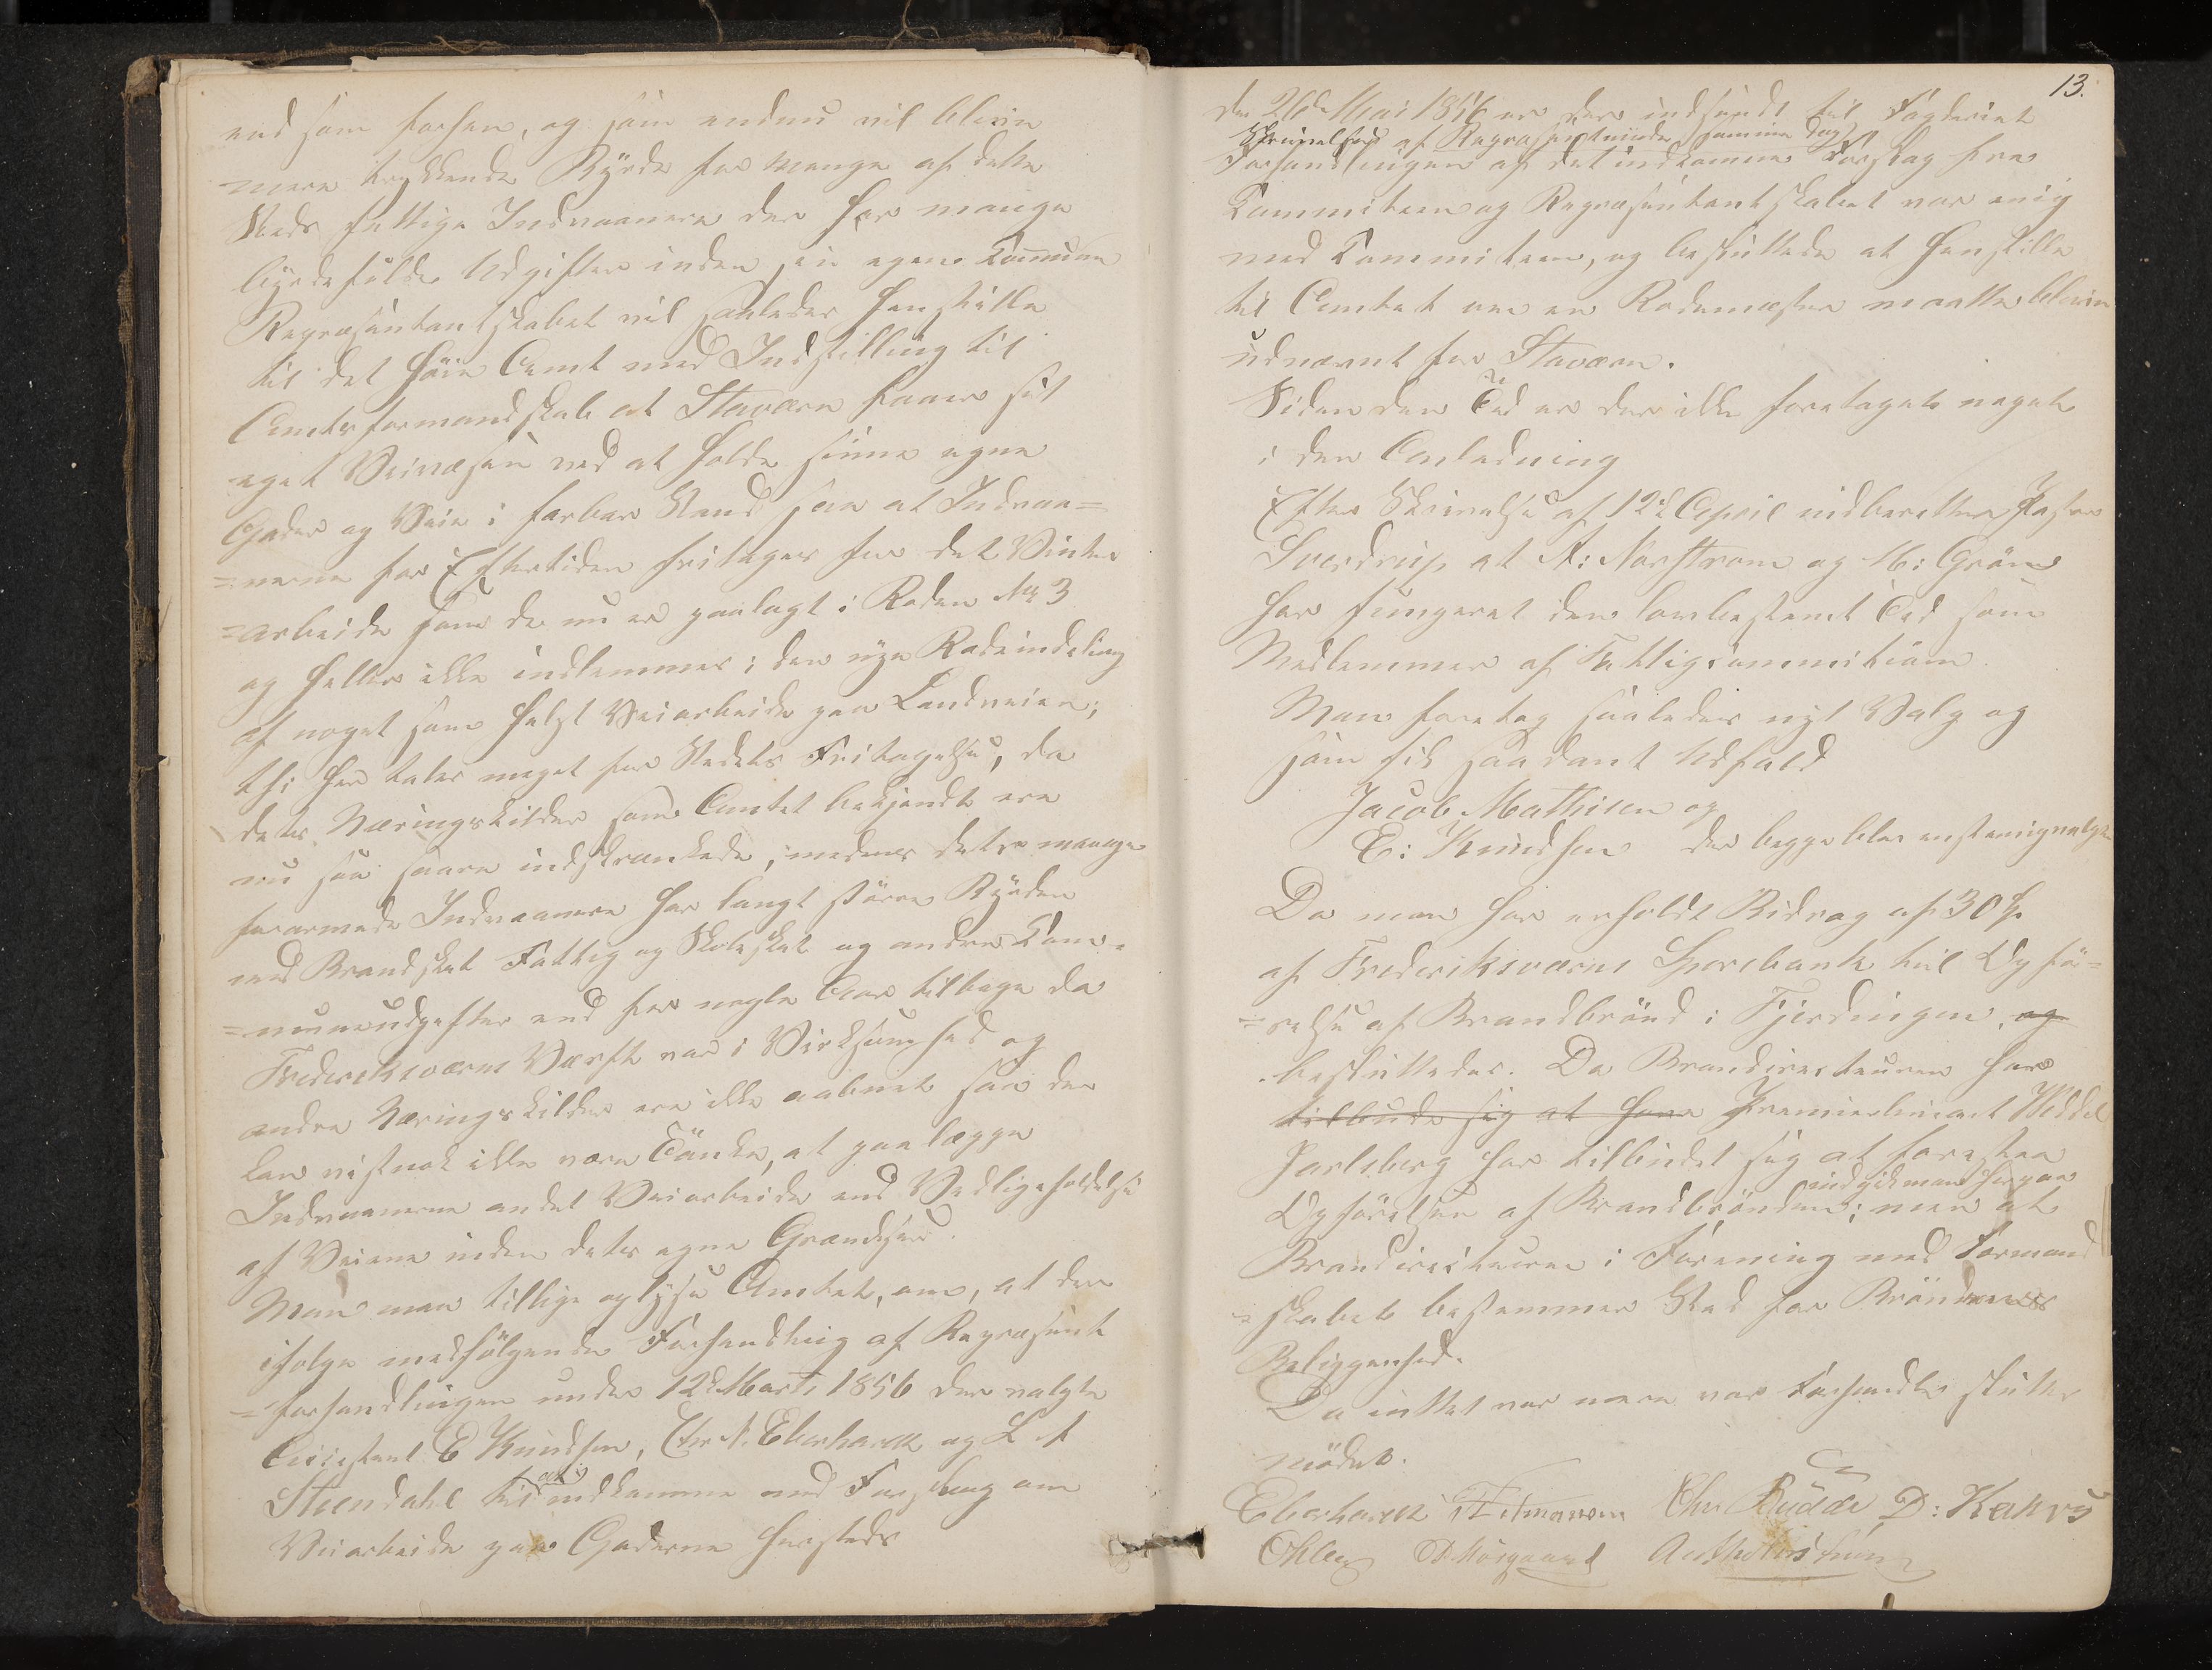 end som forhen, og som endnu vil blive
mere trykkende Byrde for Mange af dette
Steds fattige Indvaanere der har mange
byrdefulde Udgifter inden sin egen Commune
Repræsentantskabet vil saaledes henstille
til det høie Amt med Indstilling til
Amtsformandskab at Stavern faaer sit
eget Veivæsen ved at holde sinne egne
Gader og Veie i farbar Stand saa at Indvaa=
=nerne for Eftertiden fritages for det Vinter
=arbeide som de nu er paalagt i Roden No 3
og heller ikke indlemmes i den nye Rodeindeling
af noget som helst Veiarbeide paa Landveien;
thi her taler meget for Stedets Fritagelse, da
dets Næringskilder som Amtet bekjendt ere
nu saa saare indskrænkede, medens dets mange
forarmede Indvaanere har langt større Byrder
med Brandskat Fattig og Skoleskat og andre Com=
=muneudgifter end for nogle Aar tilbage da
Frederiksværns Værft var i Virksomhed og
andre Næringskilder ere ikke aabnet saa der
kan vistnok ikke være Tanke, at paalægge
Indvaanerne andet Veiarbeide end Vedligeholdelse
af Veiene inden dets egne Grændser.
Man maa tillige oplyse Amtet, om, at der
ifølge medfølgende Forhandling af Repræsent
=forhandlingen under 12te Marts 1856 der valgte
Assistent E Knudsen, Chr N. Eberhardt og L. A
Steendahl til at indkomme med Forslag om
Veiarbeide paa Gaderne hersteds
13.
den 26de Mai 1856 er der indsendt til Fogderiet
Skrivelse af Repræsentmøde samme Dag
Forhandlingen af det indkomne Forslag fra
Commiteen og Repræsentantskabet var enig
med Commiteen, og besluttede at henstille
til Amtet om en Rodemester maatte blive
udnævnt for Stavern.
Siden den Tid er der ikke foretaget noget
i den Anledning
Efter Skrivelse af 12te April indberetter Pastor
Sverdrup at A: Norstrøm og M: Grøn
har fungeret den lovbestemt Tid som
Medlemmer af Fattigcommitionen.
Man foretog saaledes nyt Valg og
som fik saadant Udfald
Jacob Mathisen og
E: Knudsen der begge blev enstemig valgte
Da man har erholdt Bidrag af 30 Sp
af Frederiksværns Sparebank til Opfø=
=relse af Brandbrønd i Fjerdingen, og
besluttedes. Da Branddirecteuren har
tilbudt sig at have Premierlieutnant Weddel
Jarlsberg har tilbudet sig at forestaa
indgik man herpaa
Opførelsen af Brandbrønden; men at
Branddirecteuren i Forening med Formand
=skabet bestemmer Sted for Brøndens
Beliggenhed.
Da intet var mere var Forhandle sluttes
mødet.
Eberhardt Chr Budde D: Kahrs
Ohlen